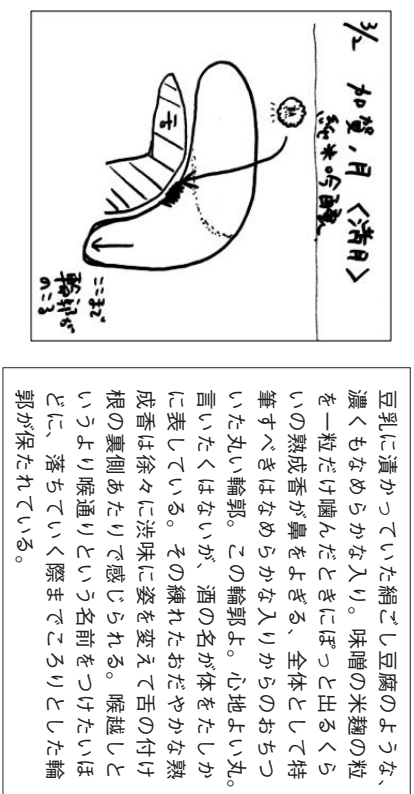 3/2 加賀ノ月〈満月〉
純米吟醸
舌
ここまで
輪郭が
のこる
豆乳に漬かっていた絹ごし豆腐のような、
濃くもなめらかな入り。味噌の米麹の粒
を一粒だけ噛んだときにぽっと出るくら
いの熟成香が鼻をよぎる、全体として特
筆すべきはなめらかな入りからのおちつ
いた丸い輪郭。この輪郭よ。心地よい丸。
言いたくはないが、酒の名が体をたしか
に表している。その練れたおだやかな熟
成香は徐々に渋味に姿を変えて舌の付け
根の裏側あたりで感じられる。喉越しと
いうより喉通りという名前をつけたいほ
どに、落ちていく際までころりとした輪
郭が保たれている。